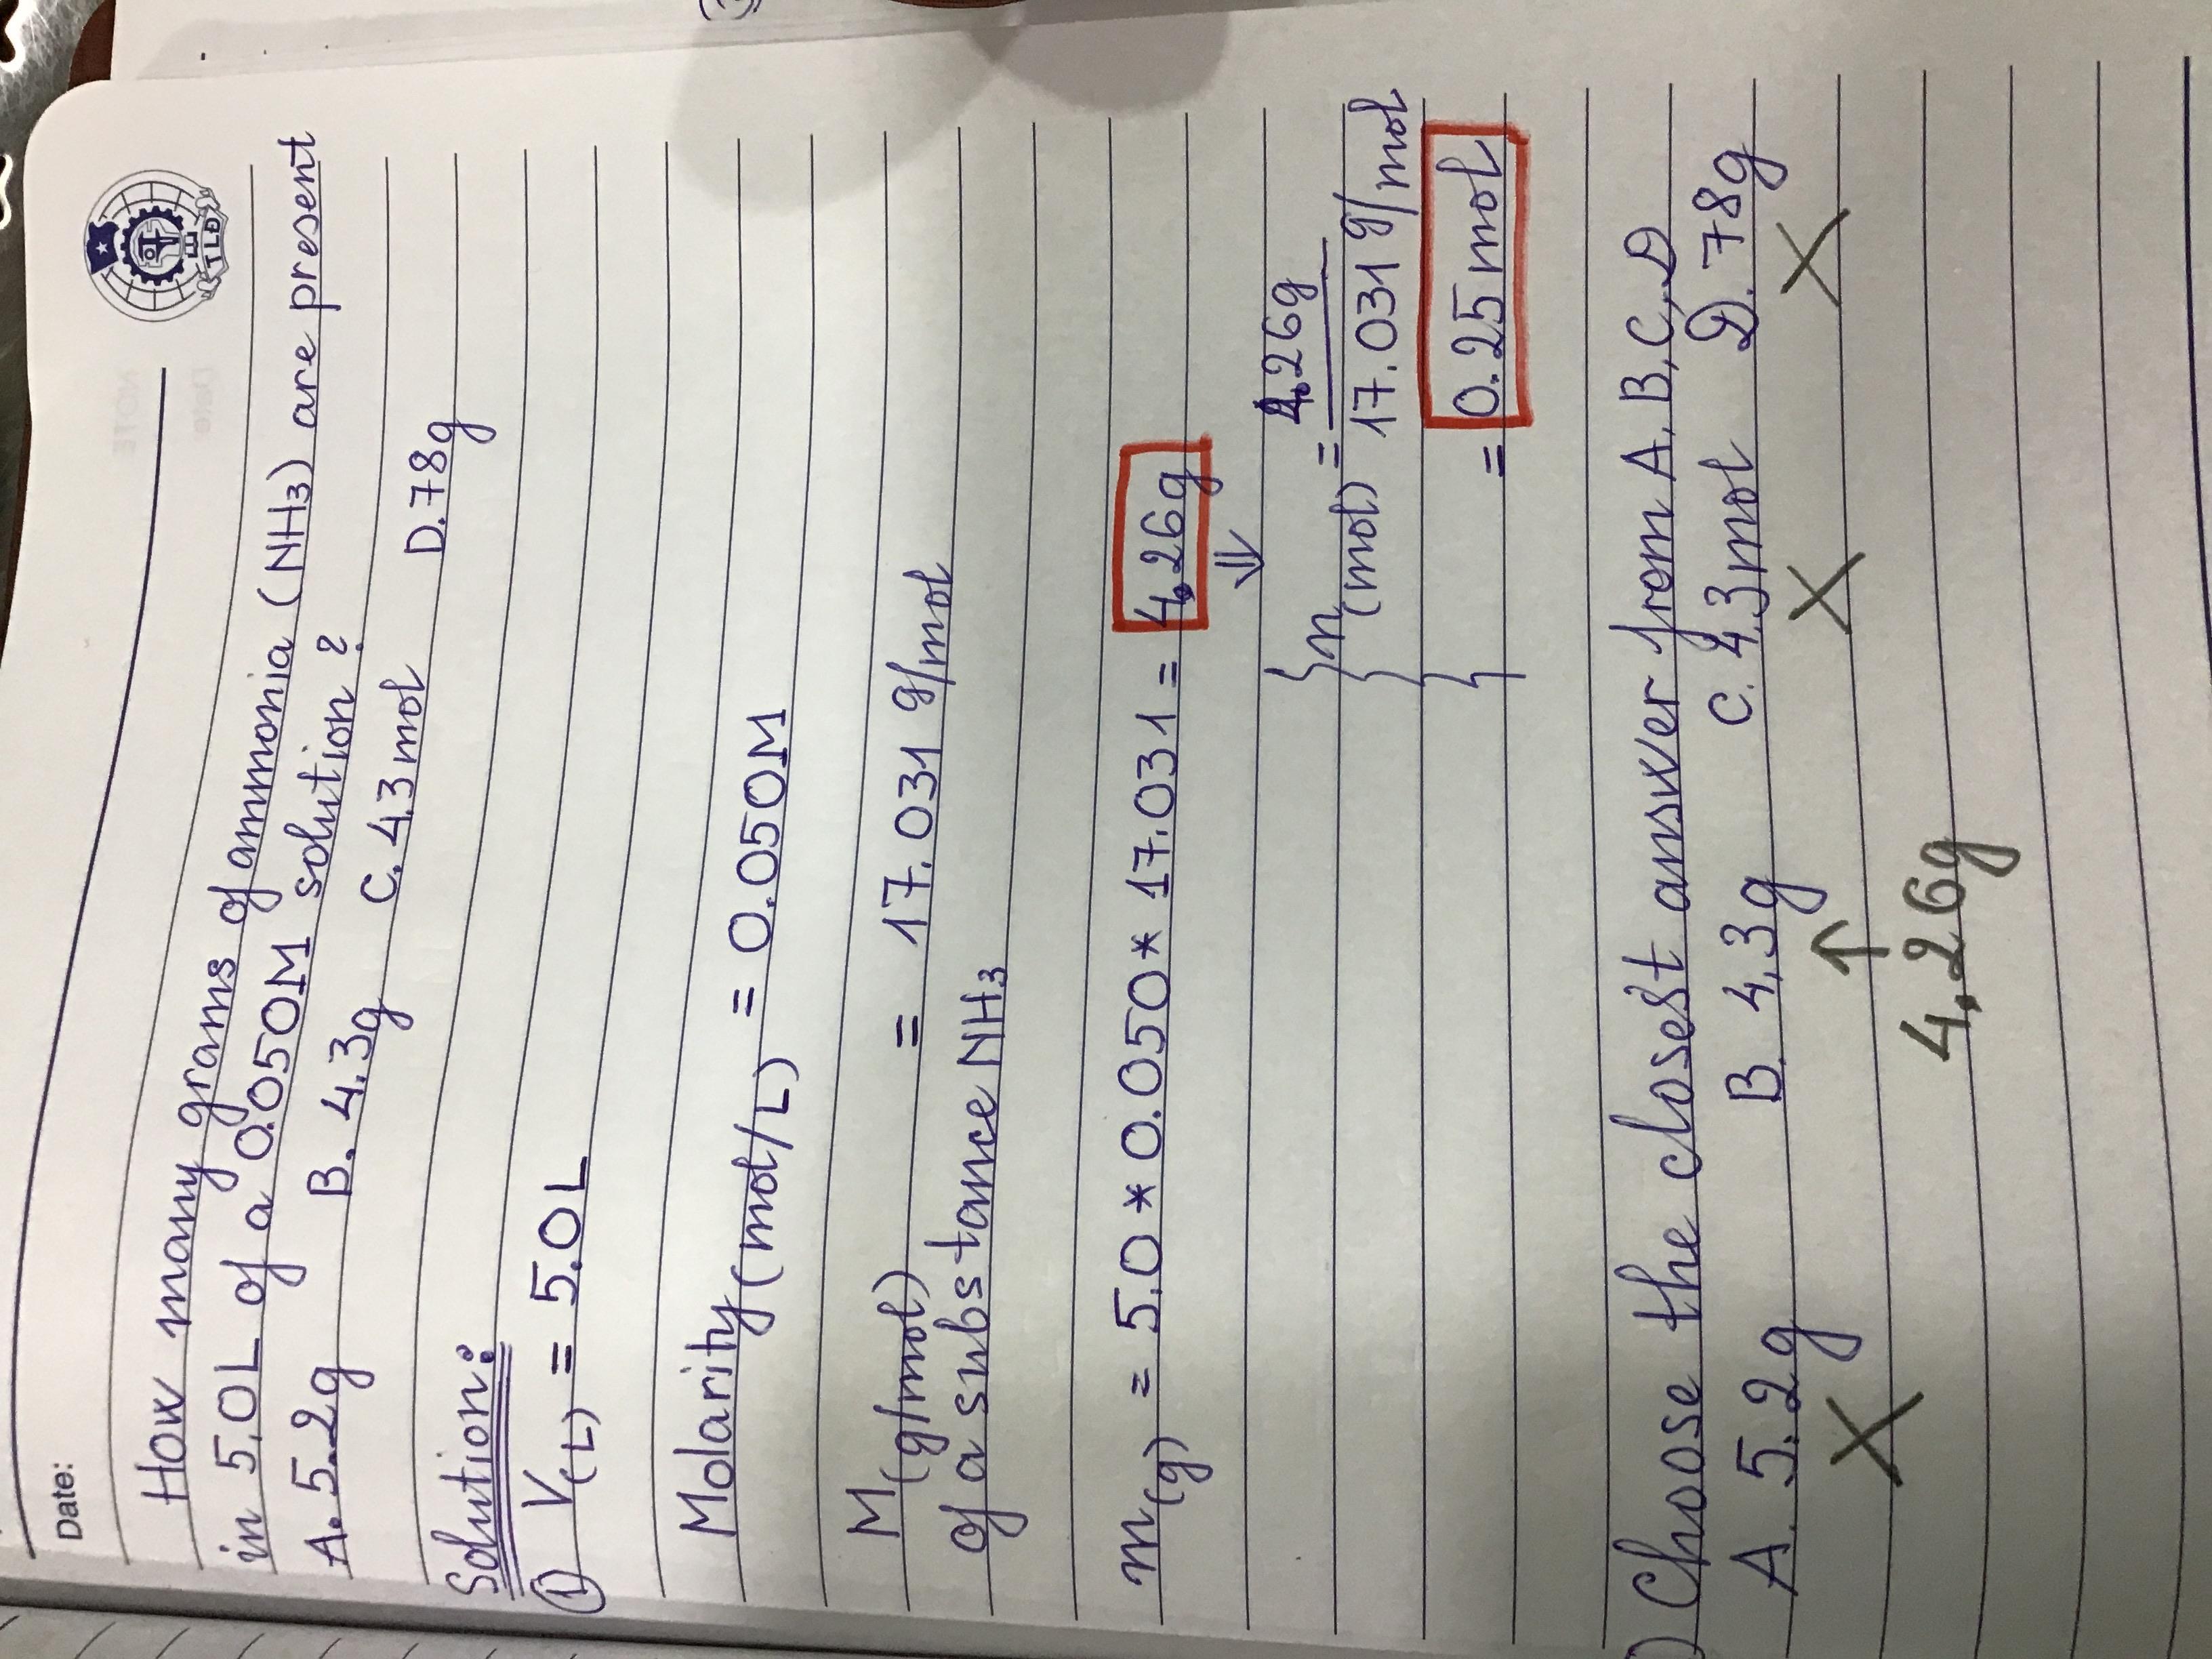 Date:
TLĐ
How many grams of ammonia (NH3) are present
in 5.0L of a 0.050M solution?
A. 5.2g B. 4.3g C. 4.3mol D. 78g
Solution:
① V(L) = 5.0L
Molarity (mol/L) = 0.050M
M (g/mol) = 17.031 g/mol
of a substance NH3
m(g) = 5.0 * 0.050 * 17.031 = 4,26g
⇓
n (mol) = 4,26g / 17.031 g/mol
= 0.25 mol
) Choose the closest answer from A, B, C, D
A. 5.2g B. 4.3g C. 4.3mol D. 78g
X ↑ X X
4,26g